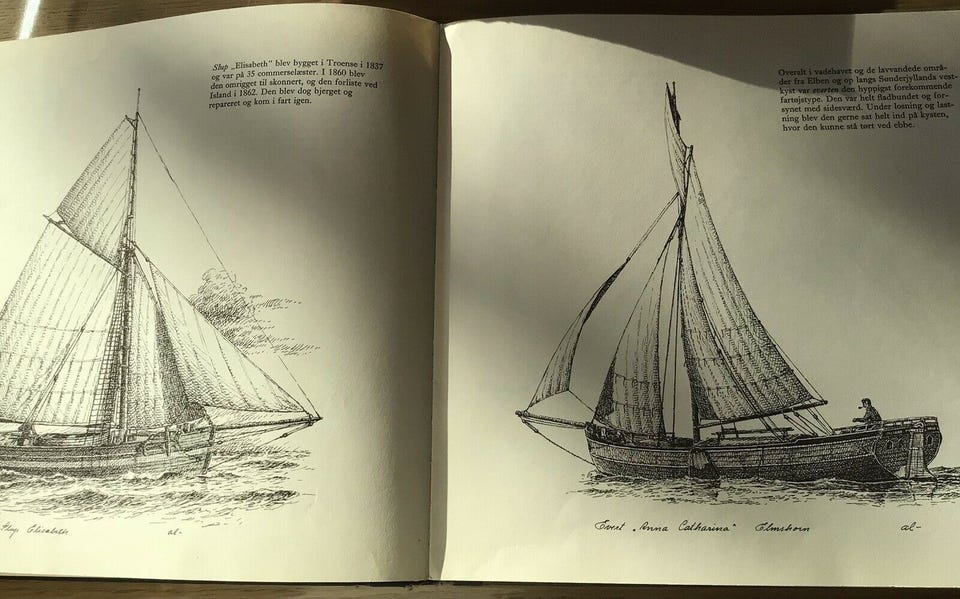 Slup „Elisabeth“ blev bygget i Troense i 1837
og var på 35 commerselæster. I 1860 blev
den omrigget til skonnert, og den forliste ved
Island i 1862. Den blev dog bjerget og
repareret og kom i fart igen.
Slup Elisabeth
al-
Overalt i vadehavet og de lavvandede områ-
der fra Elben og op langs Sønderjyllands vest-
kyst var everten den hyppigst forekommende
fartøjstype. Den var helt fladbundet og for-
synet med sidesværd. Under losning og last-
ning blev den gerne sat helt ind på kysten,
hvor den kunne stå tørt ved ebbe.
Evert „Anna Catharina“ Elmshorn
al-